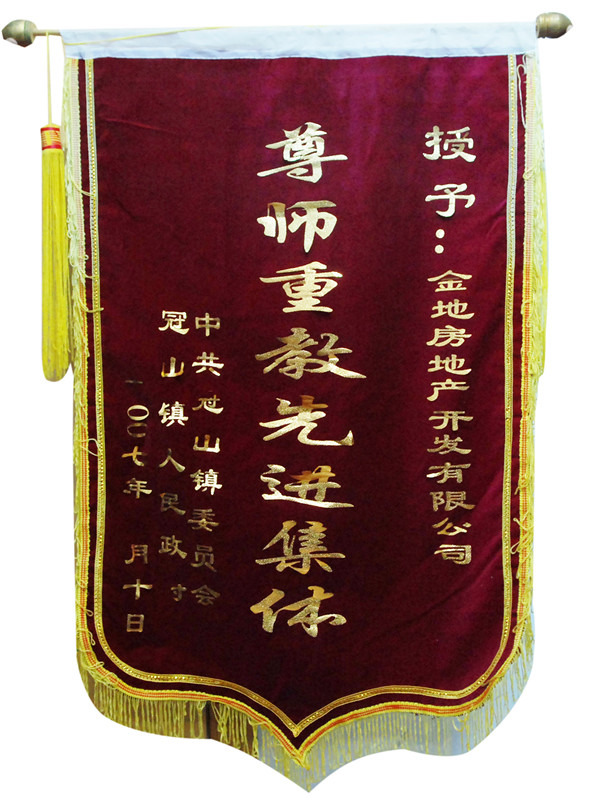 授予：金地房地产开发有限公司
尊师重教先进集体
中共冠山镇委员会
冠山镇人民政
二00七年 月十日